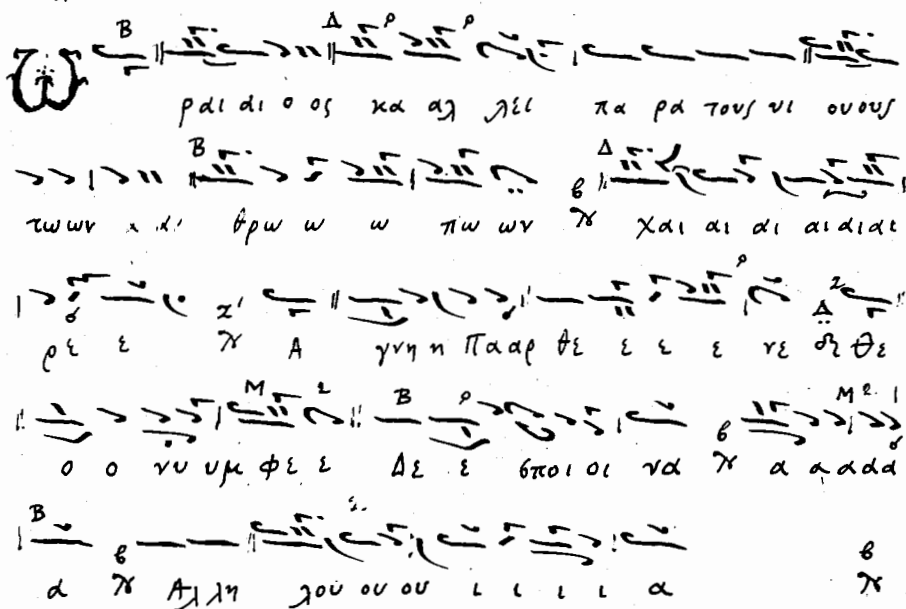 Ω ραι αι ο ος κα αλ λει πα ρα τους υι ουους
τωων α αι θρω ω ω πω ων χαι αι αι αιαιαι
ρε ε Α γνη η Πααρ θε ε ε ε νε Θε
ο ο νυ υμ φε ε Δε ε σποι οι να α α α α α
α Αλ λη λου ου ου ι ι ι ι α